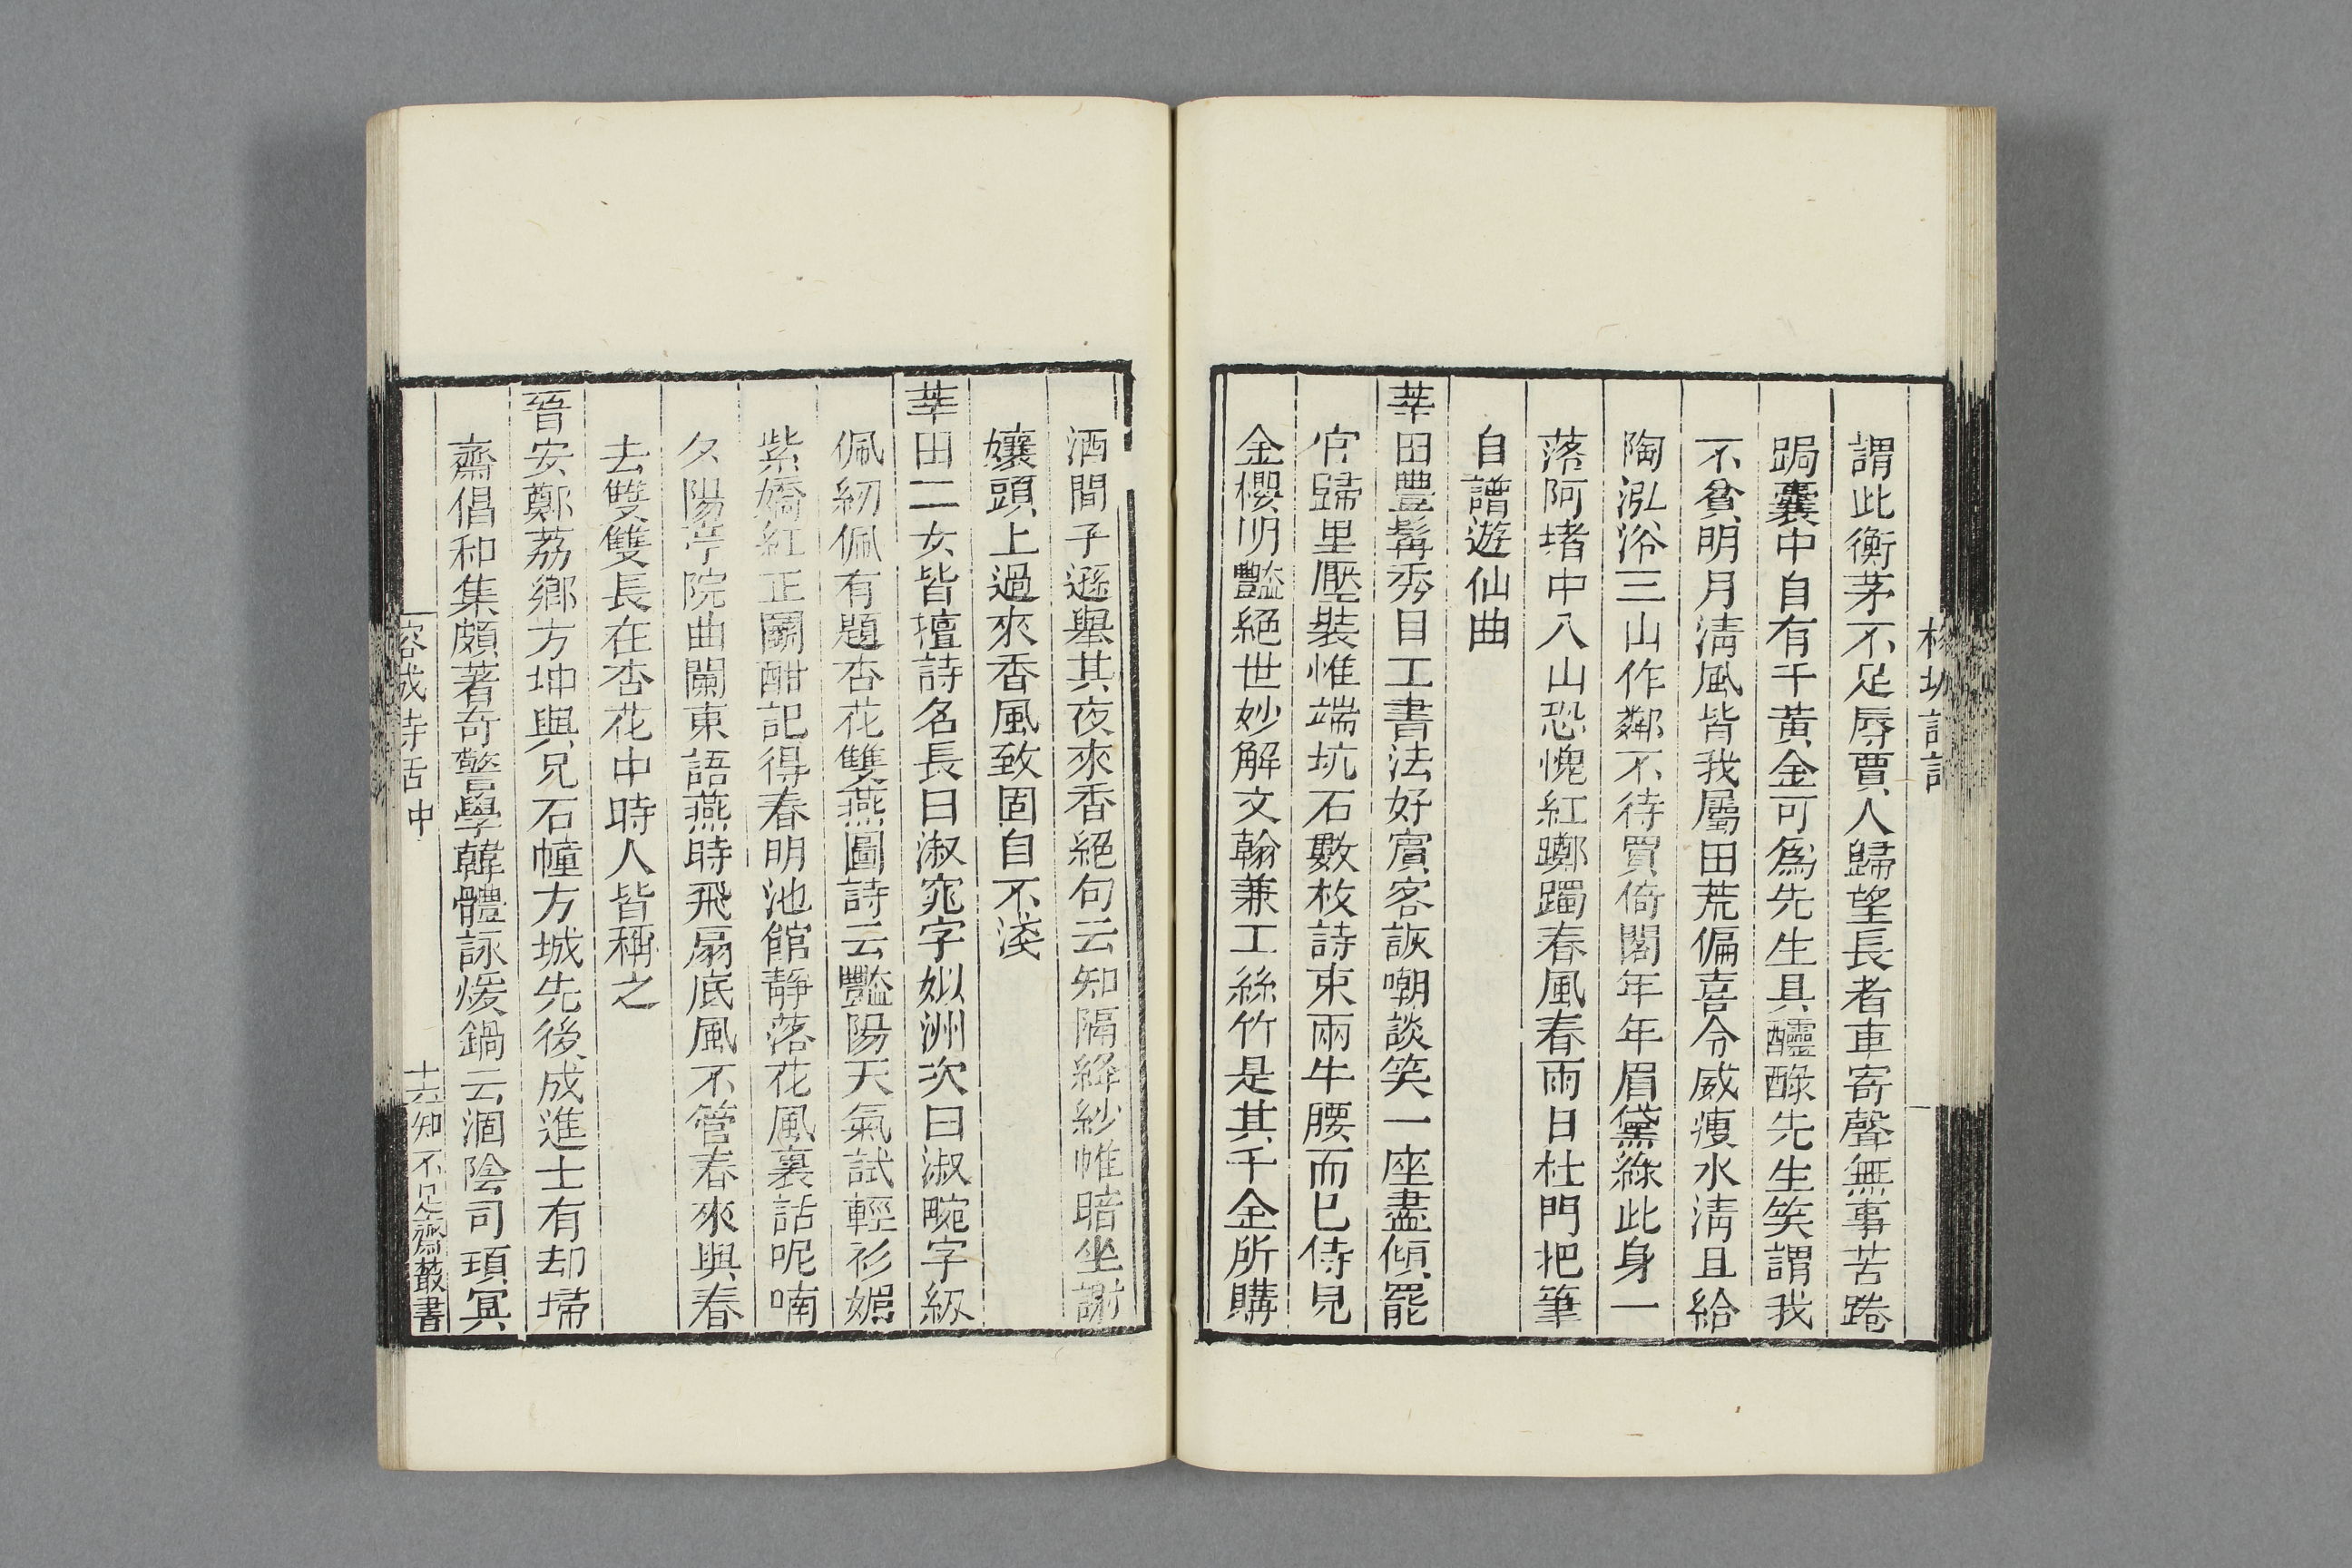 謂此衡茅不足辱賈人歸望長者車寄聲無事苦踡
跼囊中自有千黃金可為先生具醽醁先生笑謂我
不貧明月清風皆我屬田荒偏喜令威瘦水清且給
陶泓浴三山作鄰不待買倚閣年年眉黛綠此身一
落阿堵中入山恐愧紅躑躅春風春雨日杜門把筆
自譜遊仙曲
莘田豐髯秀目工書法好賓客詼嘲談笑一座盡傾罷
官歸里壓裝惟端坑石數枚詩束兩牛腰而已侍兒
金櫻明豔絕世妙解文翰兼工絲竹是其千金所購
酒間子遜舉其夜來香絕句云知隔絳紗帷暗坐謝
孃頭上過來香風致固自不淺
莘田二女皆擅詩名長曰淑窕字姒洲次曰淑畹字紉
佩紉佩有題杏花雙燕圖詩云豔陽天氣試輕衫媚
紫嬌紅正鬭酣記得春明池館靜落花風裏話呢喃
夕陽亭院曲闌東語燕時飛扇底風不管春來與春
去雙雙長在杏花中時人皆稱之
晉安鄭荔鄉方坤與兄石幢方城先後成進士有却埽
齋倡和集頗著奇警學韓體詠煖鍋云涸陰司頊冥
詩話中
十六 知不足齋叢書